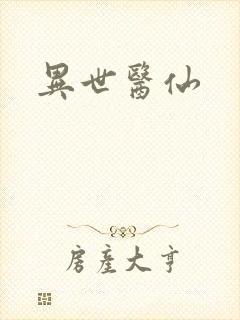 異世醫仙
房產大亨